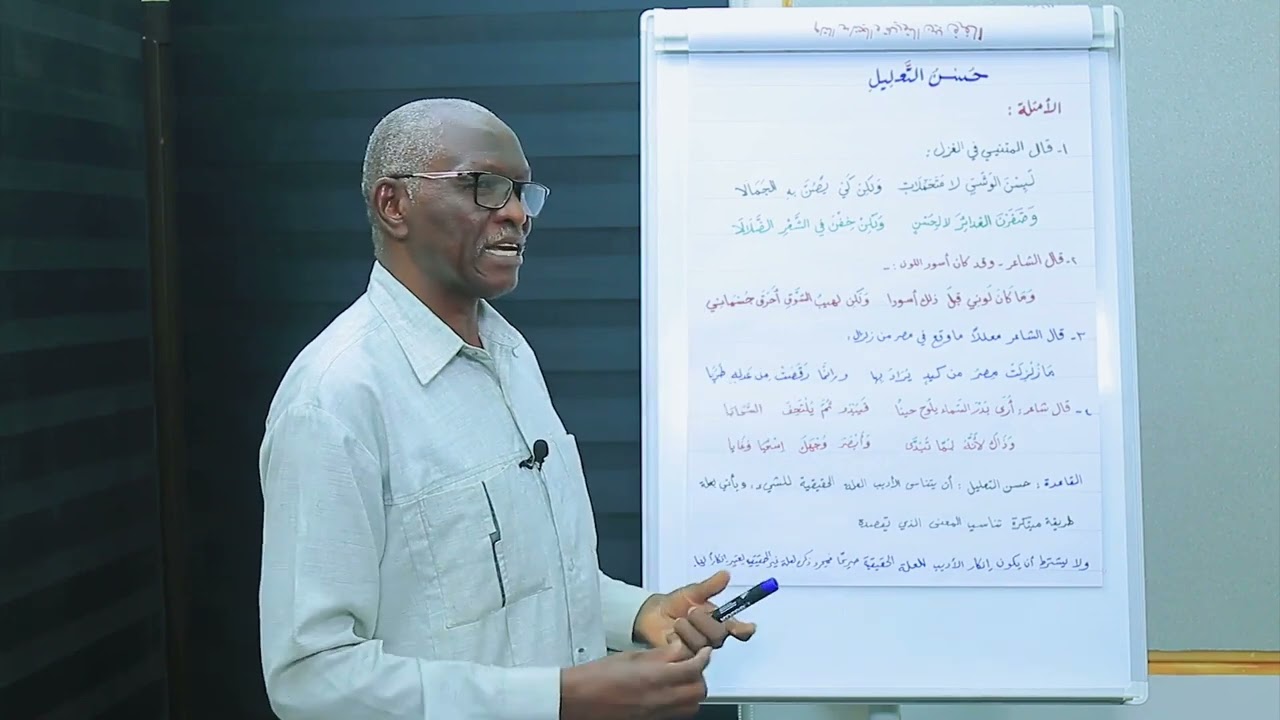 حسن التَّعليل
الأمثلة :
١- قال المتنبي في الغزل :
لَبِسْنَ الوَشْيَ لا مُتَجَمِّلاتٍ وَلكِن كَي يَصُنَّ بِهِ الجَمالا
وَضَفَّرْنَ الغدائِرَ لا لِحُسْنٍ وَلكِنْ خِفْنَ في الشَّعْرِ الضَّلالَا
٢- قال الشاعر - وقد كان أسود اللون :-
وَمَا كَانَ لَوني قَبلَ ذلك أسودا وَلكن لهيبُ الشَّوقِ أحرَقَ جُسْمانِي
٣- قال الشاعر معللاً ما وقع في مصر من زلزال :
مَا زُلْزِلَتْ مِصْرُ مِن كيدٍ يُرَادُ بِها وإنمَّا رَقَصَتْ مِن عَدلِهِ طَربا
٤- قال شاعر : أَرَى بَدْرَ السَّماءِ يلوحُ حينًا فَيَبْدُو ثُمَّ يَلْتَحِفُ السَّحَابَا
وَذَاكَ لأنَّهُ لَمَّا تَبَدَّى وَأَبْصَرَ وَجْهَكَ اسْتَحْيَا وَغَابَا
القاعدة : حسن التعليل : أن يتناسى الأديب العلة الحقيقية للشيء ، ويأتي بعلة
طريفة مبتكرة تناسب المعنى الذي يقصده
ولا يشترط أن يكون إنكار الأديب للعلة الحقيقية صريحًا فمجرد ذكر لعلة غير الحقيقية يعتبر إنكارًا لها